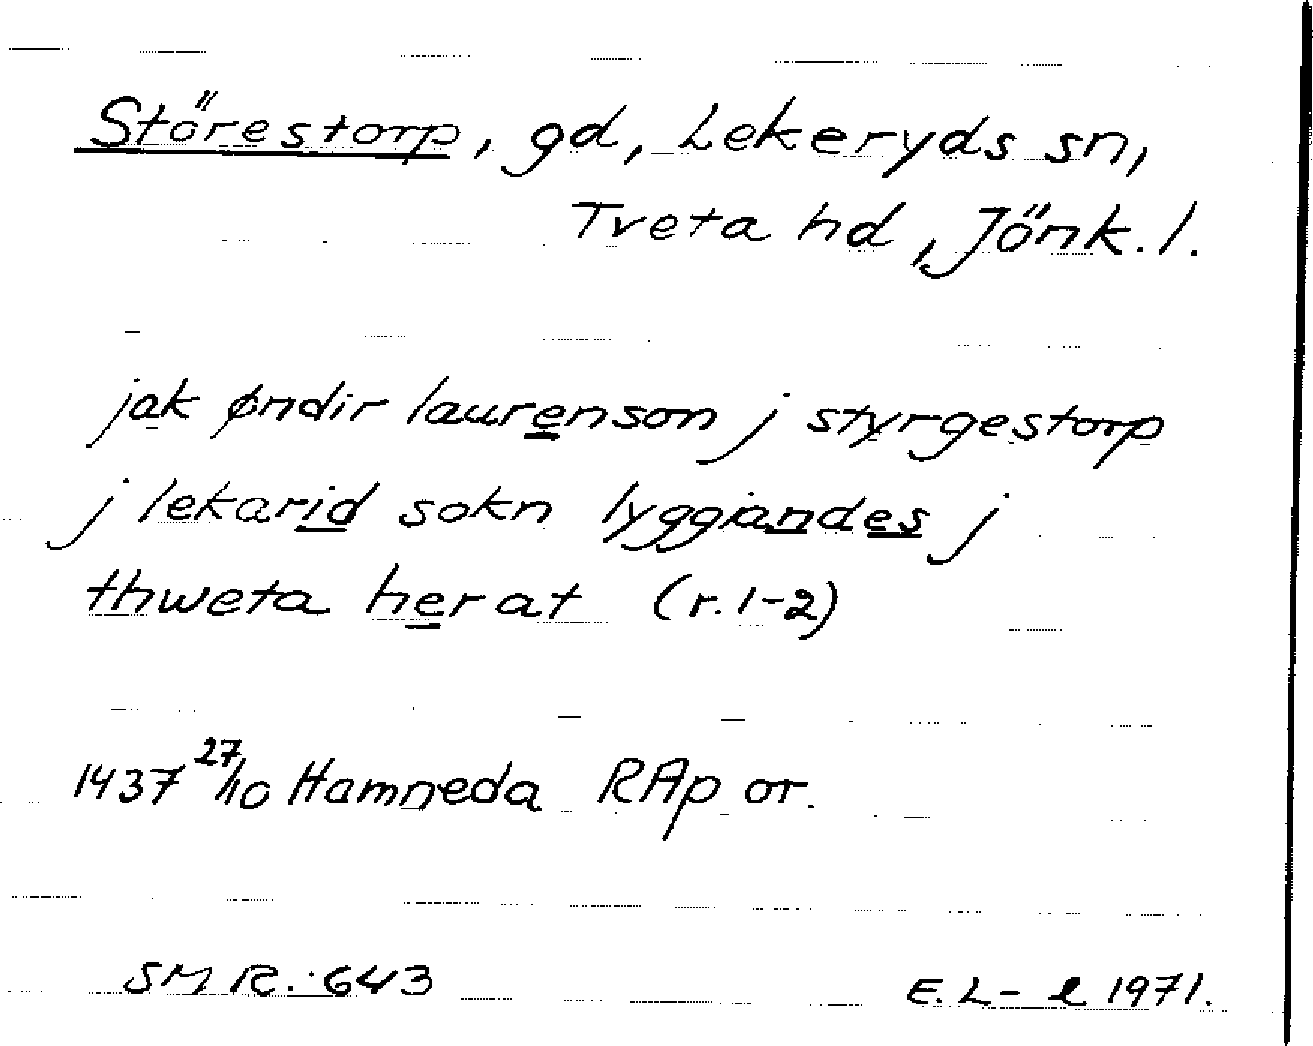 Störestorp, gd, Lekeryds sn,
Tveta hd, Jönk. l.
jak øndir laurenson j styrgestorp
j lekarid sokn lyggiandes j
thweta herat (r. 1-2)
1437 27/10 Hamneda RAp or.
SMR.: 643
E. L-l 1971.